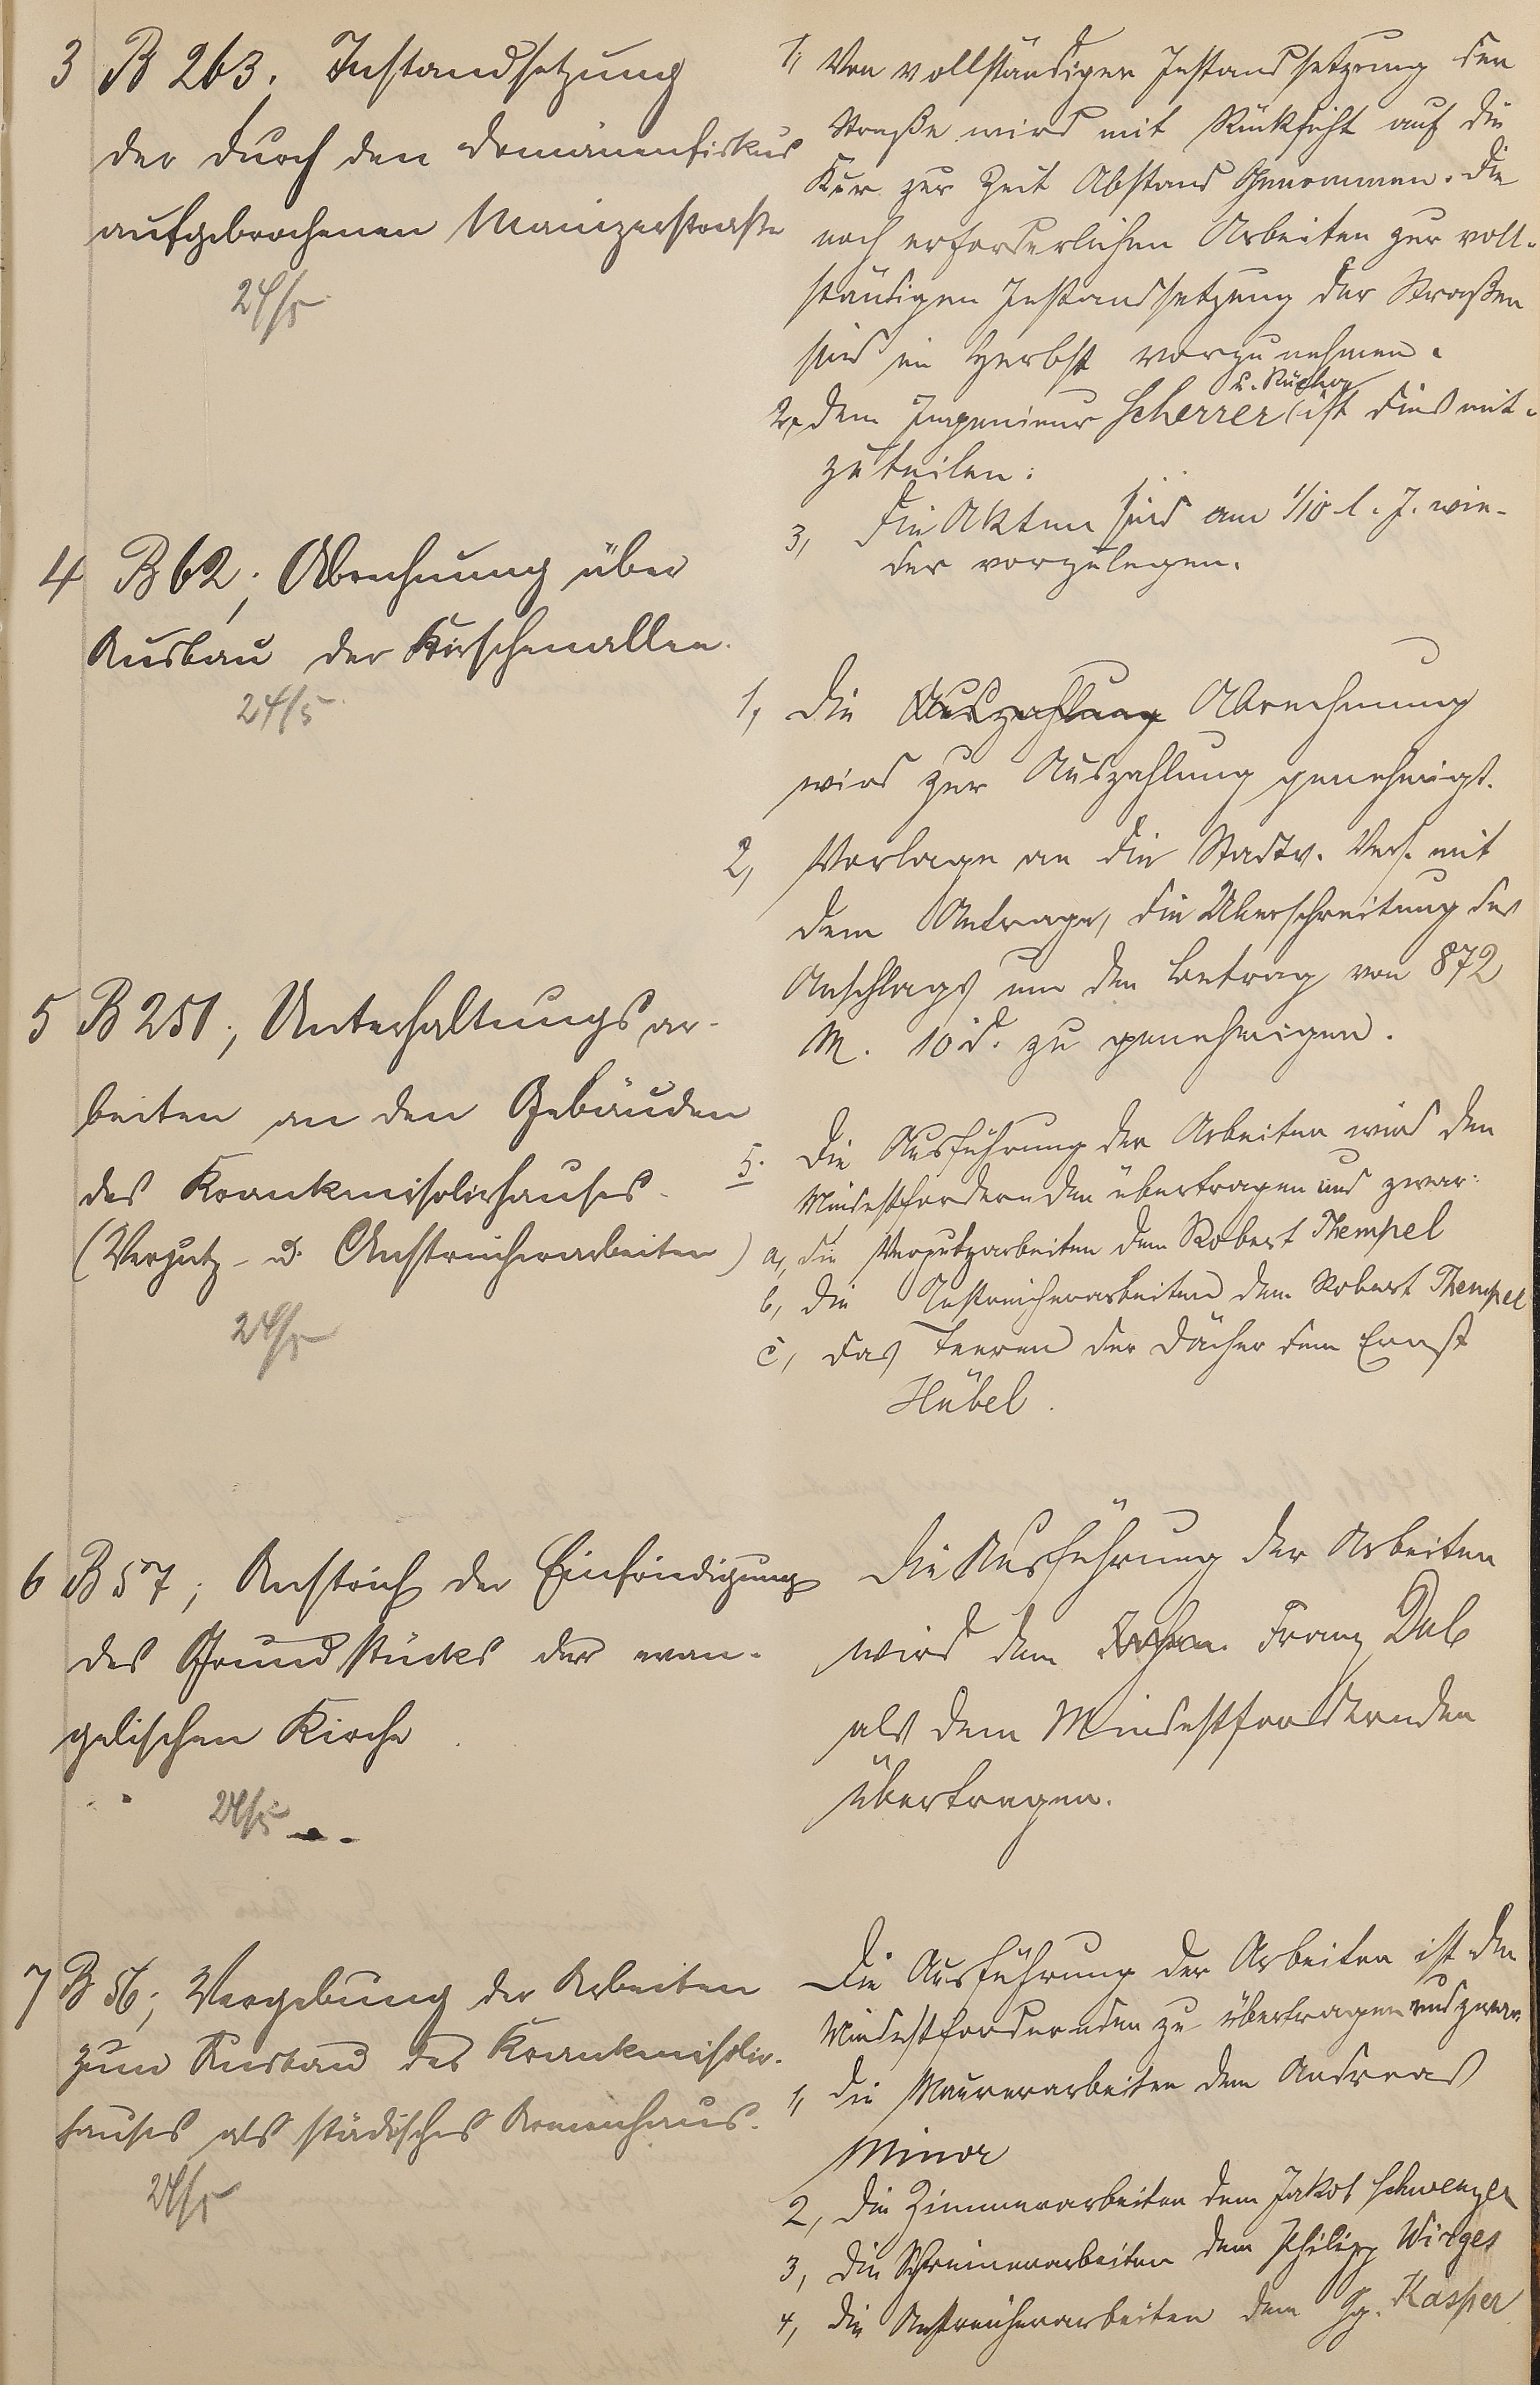 3 B 263; Instandsetzung
der durch den Domänenfiskus
aufgebrochenen Mainzerstraße
24/5
1, Von vollständiger Instandsetzung der
Straße wird mit Rücksicht auf die
Kur zur Zeit Abstand genommen. Die
noch erforderlichen Arbeiten zur voll-
ständigen Instandsetzung der Straßen
sind im Herbst vorzunehmen.
2, dem Ingenieur Scherrer ist dies mit-
zuteilen.
3, die Akten sind am 1/10 l. J. wie-
der vorzulegen.
4 B 62; Abrechnung über
Ausbau der Kirschenallee.
24/5
1, die Auszahlung Abrechnung
wird zur Auszahlung genehmigt.
2, Vorlage an die Stadtv. Vers. mit
dem Antrage, die Überschreitung des
Anschlags um den Betrag von 872
M. 10 d. zu genehmigen.
5 B 251; Unterhaltungsar-
beiten an den Gebäuden
des Krankenisolirhauses
(Verputz- u. Anstreicherarbeiten)
24/5
5. Die Ausführung der Arbeiten wird den
Mindestfordernden übertragen und zwar:
a, die Verputzarbeiten dem Robert Thempel
b, die Anstreicherarbeiten dem Robert Thempel
c, das Teeren der Dächer dem Ernst
Hübel.
6 B 57; Anstrich der Einfriedigung
des Grundstücks der evan-
gelischen Kirche
24/5
Die Ausführung der Arbeiten
wird dem Franz Dal
als dem Mindestfordernden
übertragen.
7 B 56; Vergebung der Arbeiten
zum Ausbau des Krankenisolir-
hauses als städtisches Armenhaus.
24/5
Die Ausführung der Arbeiten ist den
Mindestfordernden zu übertragen und zwar:
1, die Maurerarbeiten dem Andreas
Minor
2, die Zimmerarbeiten dem Jakob Schwenzer
3, die Schreinerarbeiten dem Philipp Wirges
4, die Anstreicherarbeiten dem Gg. Kasper